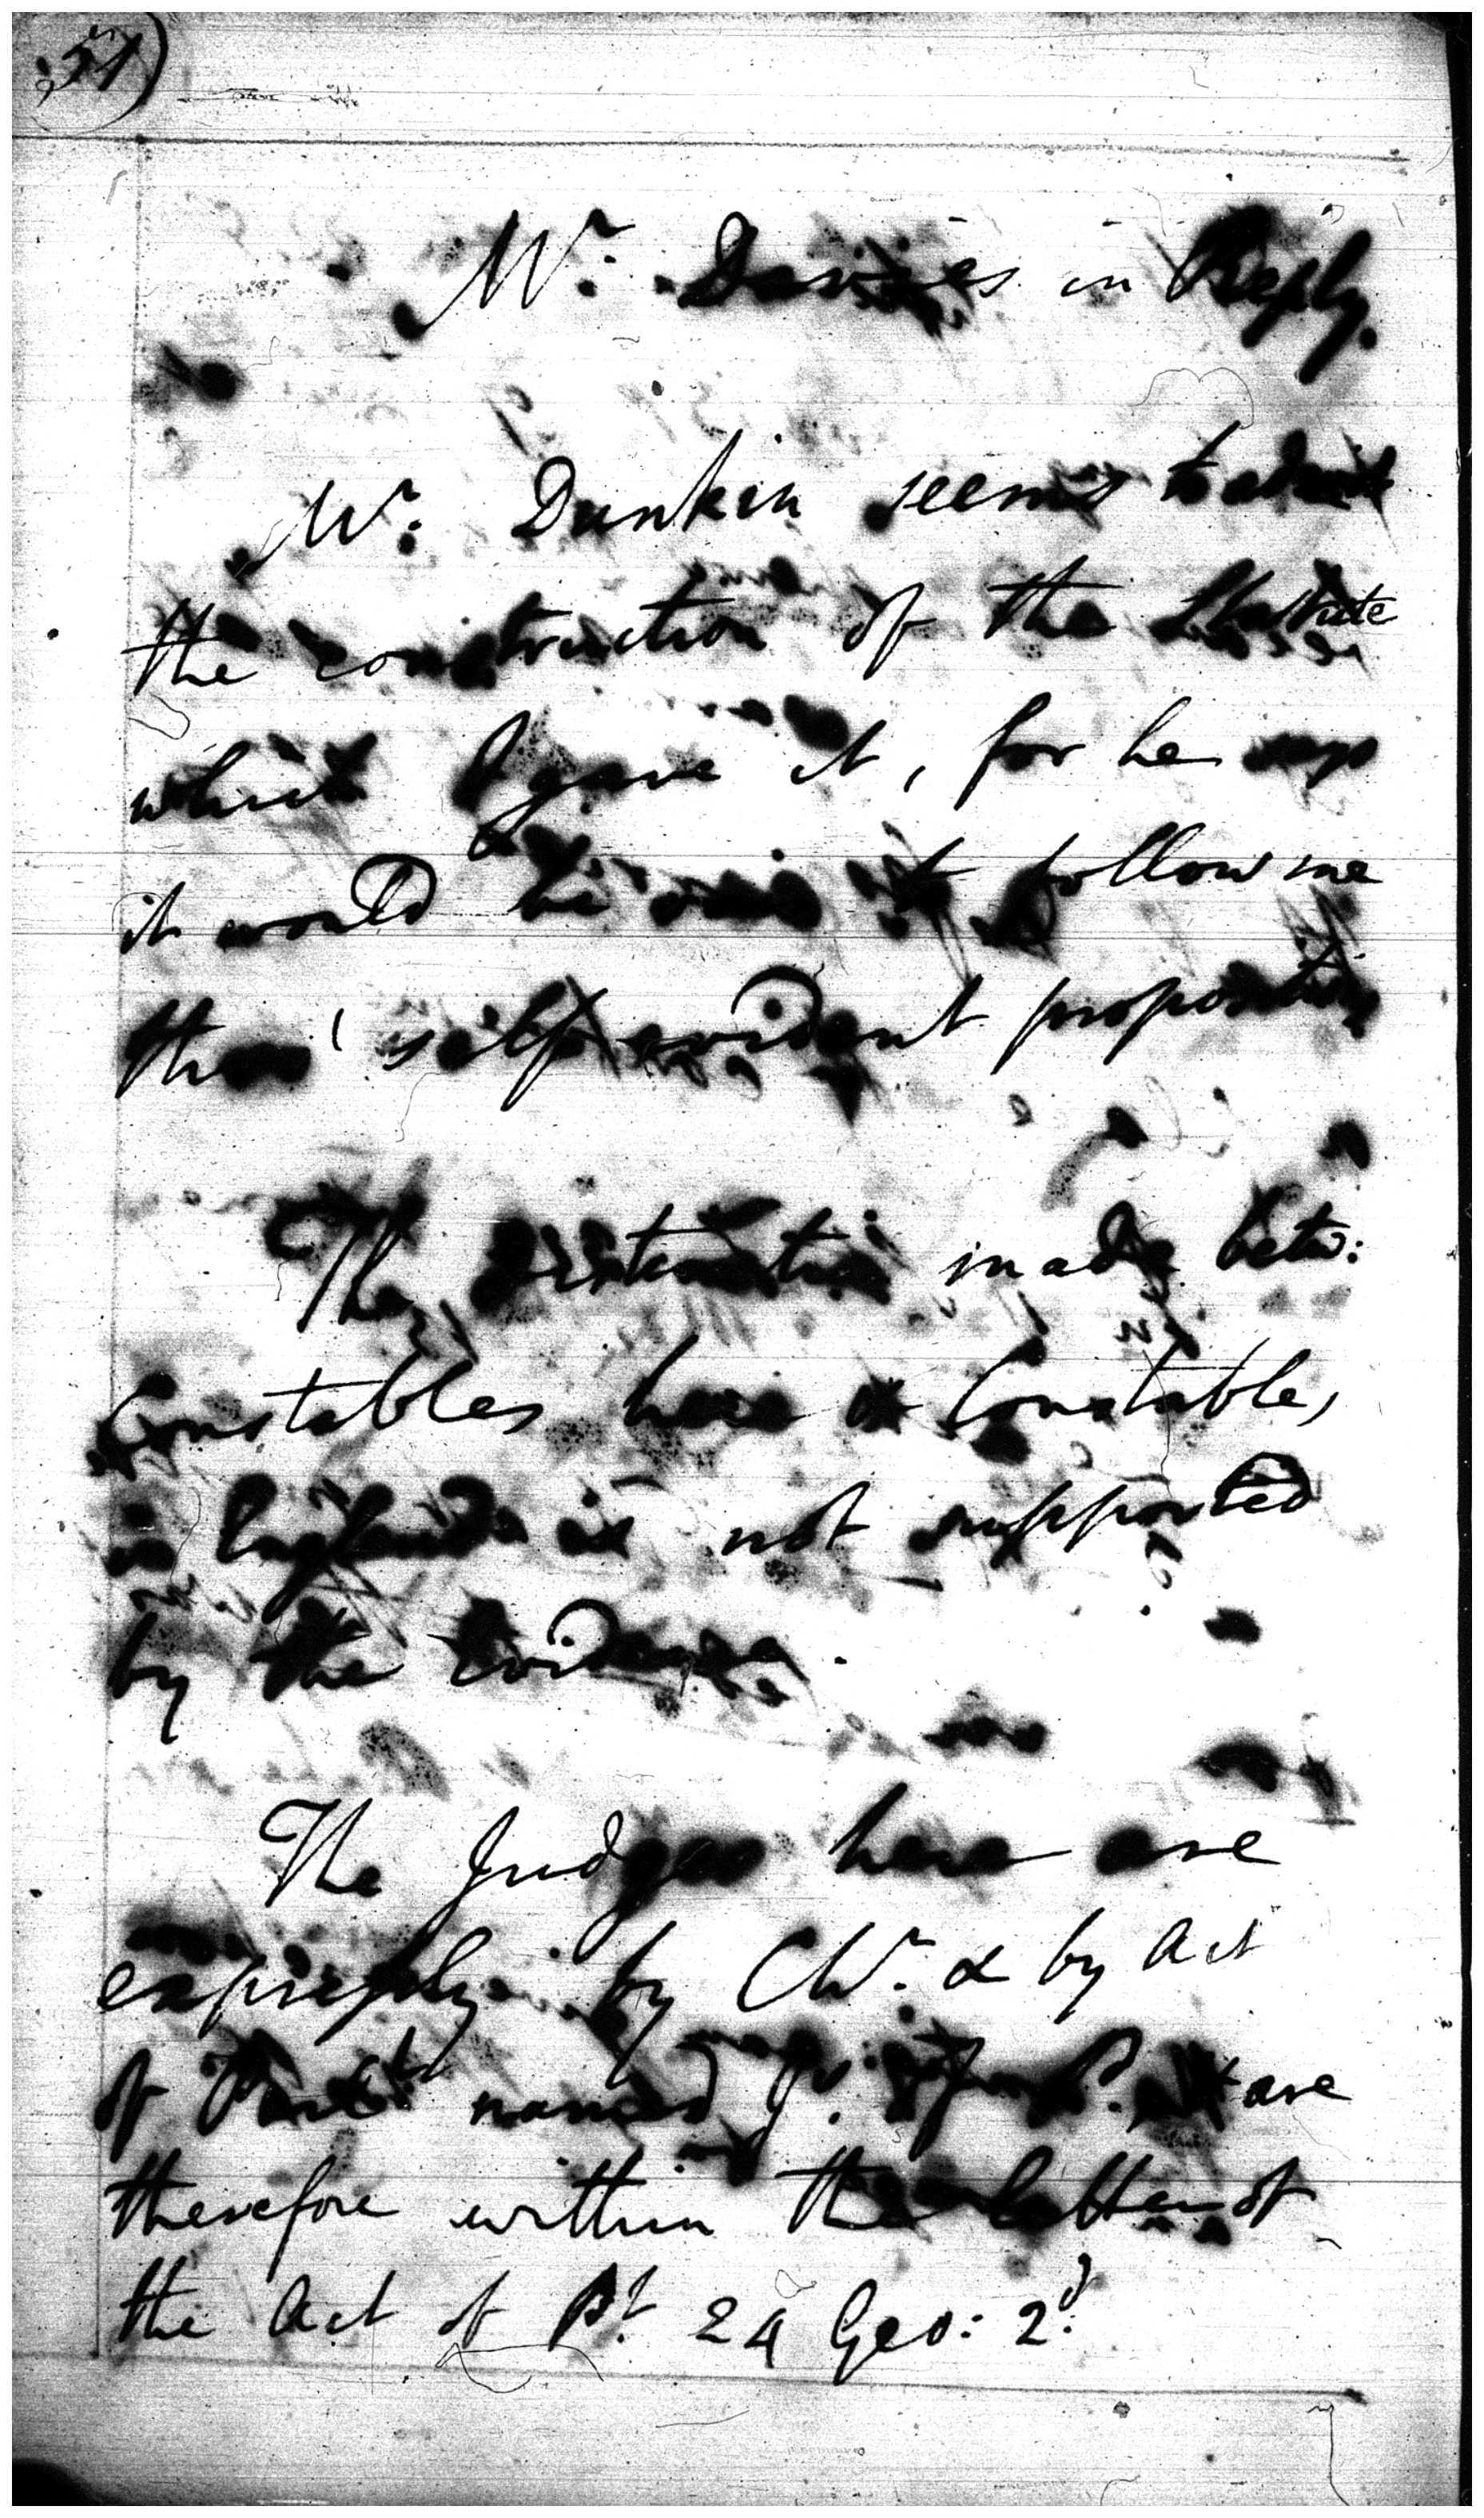 Mr. Davies in Reply.
Mr. Dunkin seems to admit
the construction of the Statute
which I gave it, for he says
it would be vain to follow me
thro' self evident propositions
The distinction made betw:
Constables here & Constables
in England is not supported
by the Evidence.
The Judges here are
expressly by Chr. & by Act
of Parlt named Js. of P. & are
therefore within the letter of
the Act of Pt. 24 Geo: 2d.